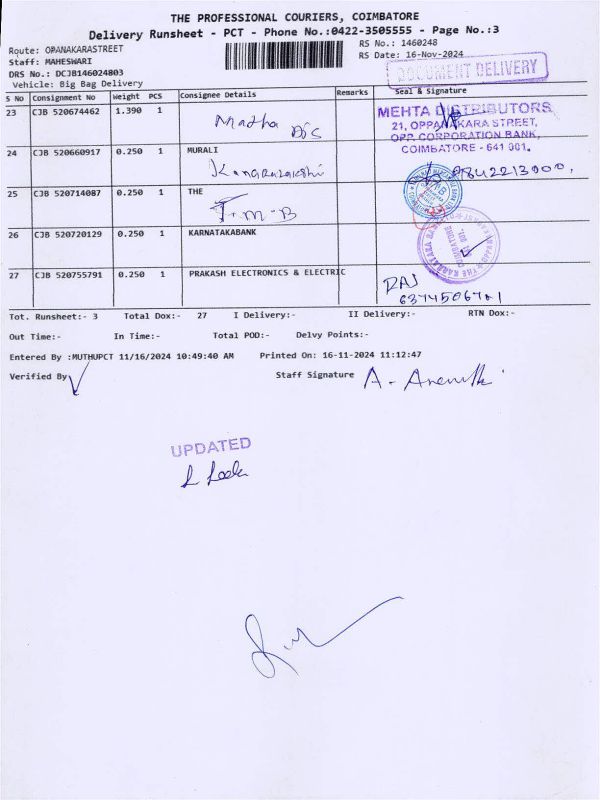 THE PROFESSIONAL COURIERS, COIMBATORE
Delivery Runsheet - PCT - Phone No.:0422-3505555 - Page No.:3
Route: OPANAKARASTREET
RS No.: 1460248
Staff: MAHESWARI
RS Date: 16-Nov-2024
DRS No.: DCJB146024803
DOCUMENT DELIVERY
Vehicle: Big Bag Delivery
S No Consignment No Weight PCS Consignee Details Remarks Seal & Signature
23 CJB 520674462 1.390 1
MEHTA DISTRIBUTORS
21, OPPANAKARA STREET,
OPP. CORPORATION BANK,
COIMBATORE - 641 001.
24 CJB 520660917 0.250 1 MURALI
9842213000,
25 CJB 520714087 0.250 1 THE
T.M.B
26 CJB 520720129 0.250 1 KARNATAKABANK
27 CJB 520755791 0.250 1 PRAKASH ELECTRONICS & ELECTRIC
RAJ
Tot. Runsheet:- 3 Total Dox:- 27 I Delivery:- II Delivery:- RTN Dox:-
Out Time:- In Time:- Total POD:- Delvy Points:-
Entered By :MUTHUPCT 11/16/2024 10:49:40 AM Printed On: 16-11-2024 11:12:47
Verified By
Staff Signature
UPDATED